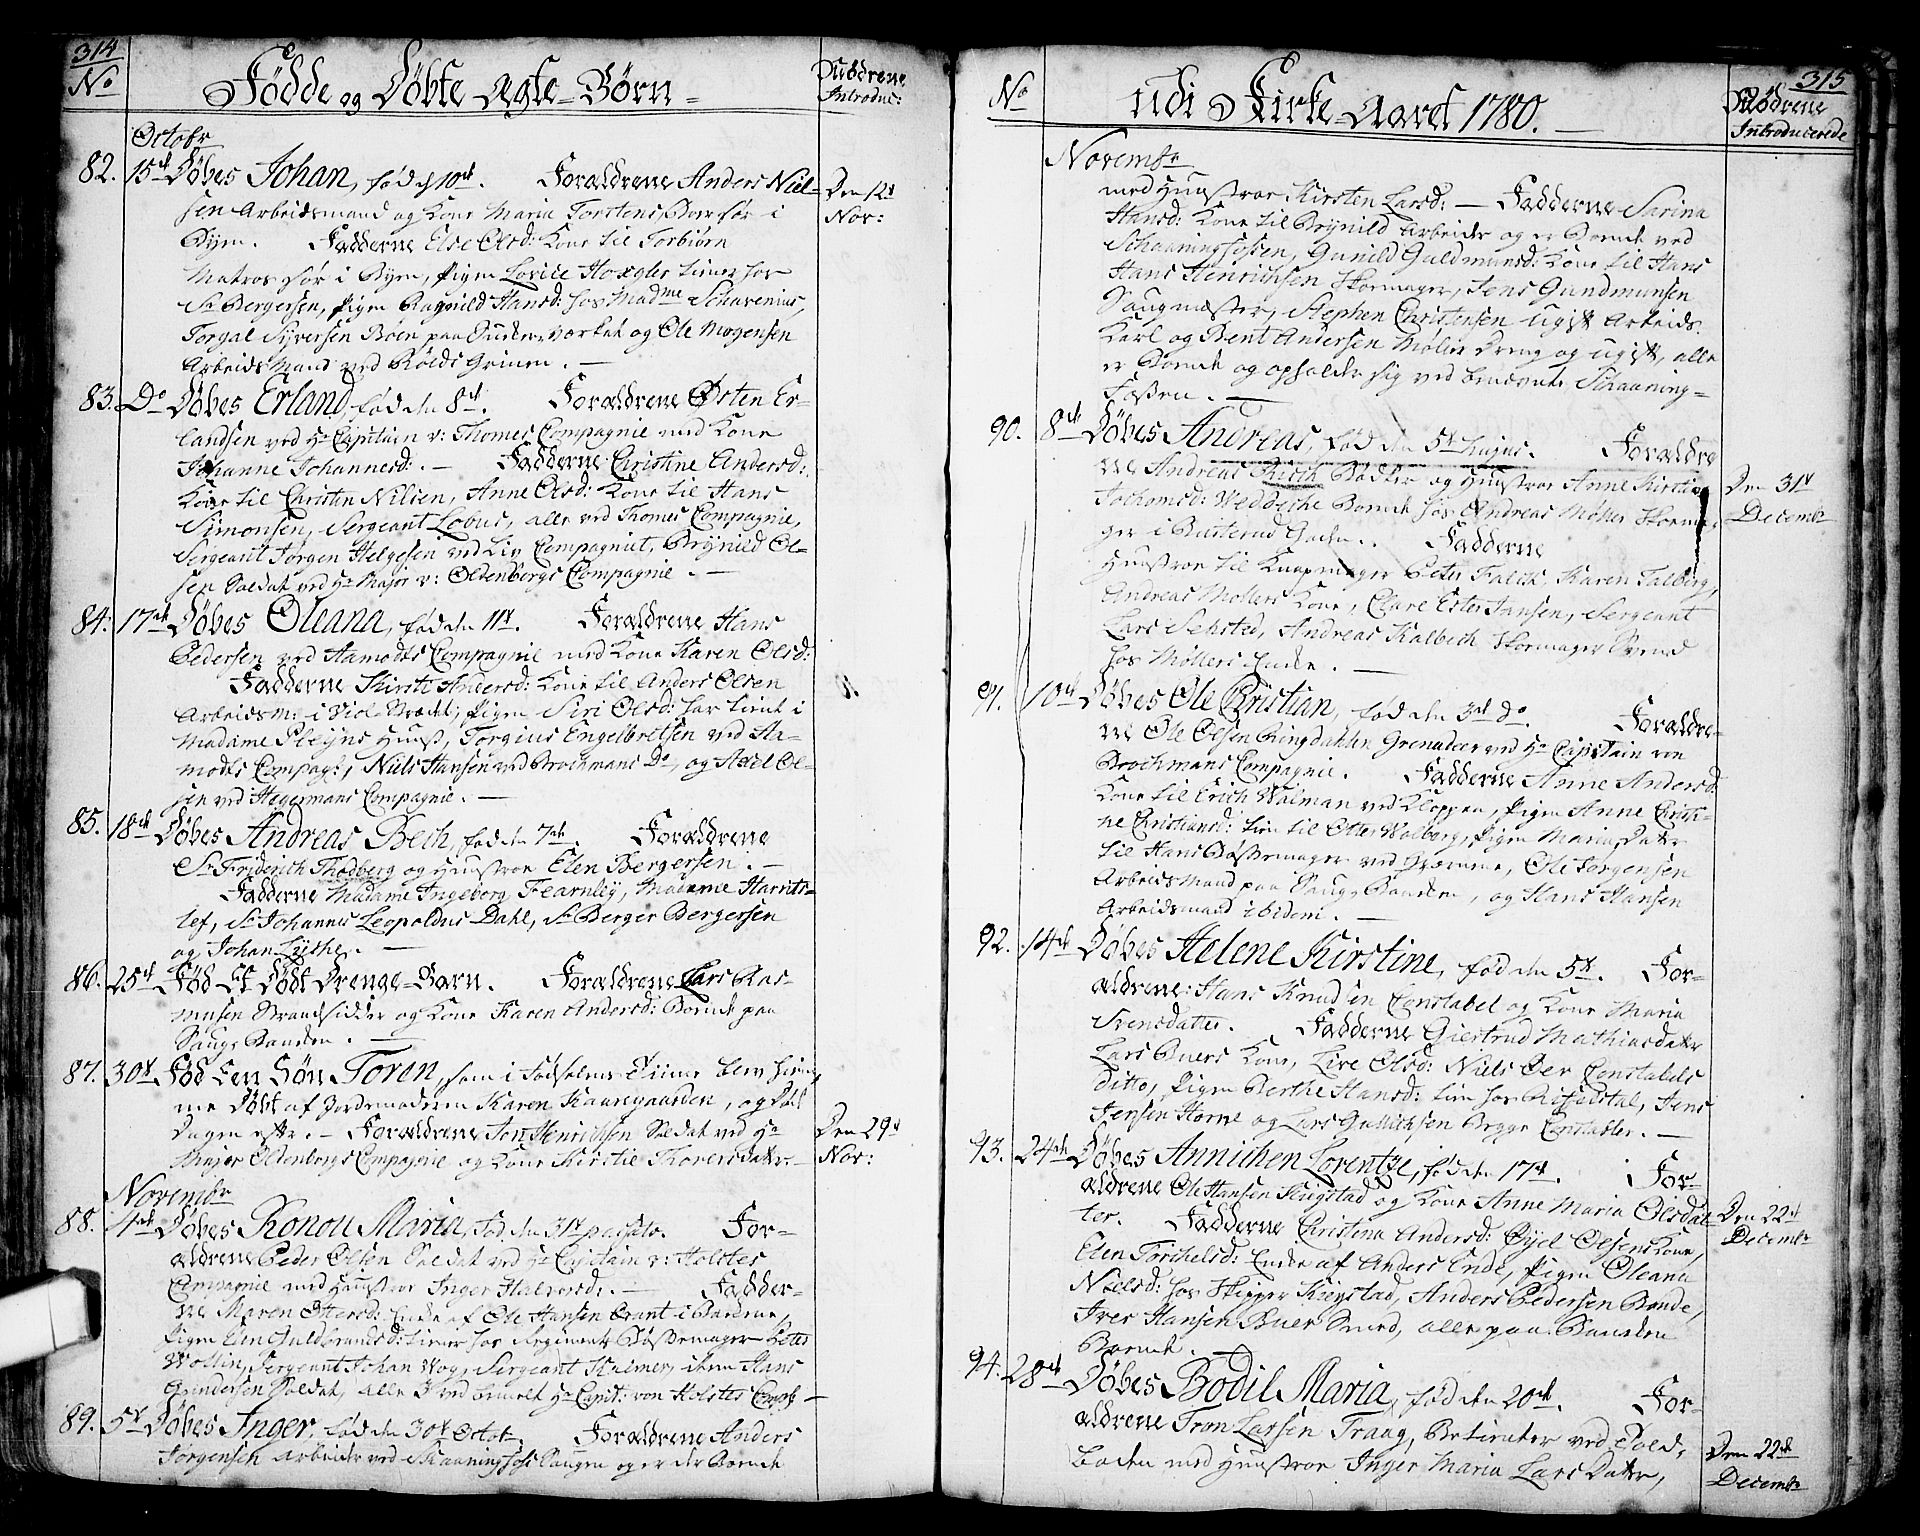 314
No
Fødde og Døbte Ægte-Børn
Mødrene
Introduc:
Octobr
82. 15de Døbes Johan, fød d 10de. Forældrene Anders Niel-
sen Arbeidsmand og Kone Maria Torstens Datter før i
Byen. Fadderne Else Olsd: Kone til Torbiørn
Matros før i Byen, Pigen Lovice Hoxgler tiener hos
Sr Bergersen, Pigen Ragnild Hansd: hos Madme Schavenius,
Torgal Syversen Boen paa værket og Ole Mogensen
Arbeids Mand ved Røids Grinen. —
Den 12t
Nov:
83. Do Døbes Erland, fød den 8de. Forældrene Østen Er-
landsen ved Hr Capitain v: Thomes Compagnie med Kone
Johanne Johannesd: — Fadderne Christine Andersd:
Kone til Christen Nilsen, Anne Olsd: Kone til Hans
Simonsen, Sergeant Lobus, alle ved Thomes Compagnie,
Sergeant Jørgen Helgesen ved Liv Compagniet, Brynild Ol-
sen Soldat ved Hr Major v: Oldenbergs Compagnie. —
84. 17de Døbes Oleana, fød den 11t. Forældrene Hans
Pedersen ved Aamodts Compagnie med Kone Karen Olsd:
Fadderne Kirsti Andersd: Kone til Anders Olsen
Arbeidsm: i Viol-Brædet, Pigen Siri Olsd: har tient i
Madame Pleijns Huus, Torgius Engelbretsen ved Aa-
modts Compag:, Niels Hansen ved Brochmans Do, og Axel Ol-
sen ved Hegermans Compagnie. —
85. 18de Døbes Andreas Bech, fød den 7de. Forældrene
Sr Friderich Thodberg og Hustroe Elen Bergersen. —
Fadderne Madame Ingeborg Fearnleij, Madame Harrits-
lef, Sr Johannes Leopoldus Dahl, Sr Berger Bergersen
og Johan Lÿthe. —
86. 25de Fød Et Dødt Drenge-Barn. Forældrene Lars Ras-
musen Strandsidder og Kone Karen Andersd: Boende paa
Saug Banden. —
87. 30t Fød Een Søn Toren, som i Fødselens Time blev hiem-
me Døbt af Jordemoderen Karen Kaaregaarden, og Død
Dagen efter. — Forældrene Jon Henrichsen Soldat ved Hr
Major Oldenbergs Compagnie og Kone Kirstie Thoresdatter. —
Den 29t
Nov:
Novembr
88. 4de Døbes Konou Maria, fød den 31t passato. For-
ældrene Peder Olsen Soldat ved Hr Capitain v: Holstes
Compagnie med Hustroe Inger Halvorsd: — Fadder-
ne Maren Ottersd: Enke af Ole Hansen Brant i Barerne,
Pigen Elen Guldbrandsd: tiener hos Regiments Bøssemager Peter
Wollin, Sergeant Johan Vog, Sergeant Kulmer, item Hans
Gundersen Soldat, alle 3 ved bemelt Hr Capit: von Holstes Comp:
89. 5t Døbes Inger, fød den 30t Octob:. Forældrene Anders
Jørgensen Arbeider ved Skaaningfos Saugen og er der Boende
315
No
udi Kirke-Aaret 1780. —
Mødrene
Introducerede
Novembr
med Hustroe Kirsten Larsd: — Fadderne Sarina
Hansd: Kone til Brynild Arbeider og er Boende ved
Schaaningfossen, Gunild Guldmunsd: Kone til Hans
Hans Henrichsen Skomager, Jens Gundmunsen
Saugmester, Stephen Christensen ugift Arbeids
Karl og Bent Andersen Møller Dreng og ugift, alle
er Boende og opholder sig ved benævnte Schaaning-
Fossen. —
90. 8de Døbes Andreas, fød den 5t hujus. Forældre
ne Andreas Bødker og Hustroe Anne Kirstin
Jochomsd: Weddeche Boende hos Andreas Møller Skoma-
ger i Gaden. Fadderne
Hustroe til Knapmager Peter Falch, Karen Talberg,
Andreas Møllers Kone, Clare Ester Jansen, Sergeant
Lars Sehsted, Andreas Kalbech Skomager Svend
hos Møllers Enke. —
Den 31t
Decembr
91. 10de Døbes Ole Christian, fød den 3de do. Forældre-
ne Ole Olsen Ringdahlen Grenadeer ved Hr Capitain von
Brochmans Compagnie. Fadderne Anne Andersd:
Kone til Erich Walman ved Kloppen, Pigen Anne Christi-
ne Christiansd: tien til Otter Walberg, Pigen Maria Dater
til Hans Bøssemager ved Hærnene, Ole Jorgensen
Arbeids Mand paa Saug Banden, og Hans Hansen
Arbeidsmand ibidem. —
92. 14de Døbes Helene Kirstine, fød den 5t. For-
ældrene: Hans Knudsen Constabel og Kone Maria
Svensdatter. Fadderne Giertrud Mathiasdatter
Lars Buers Kone, Live Olsd: Niels Oer Constabels
ditto, Pigen Berthe Hansd: tien hos Refsdal, Jens
Jensen Horne og Lars Gullichsen Brygge Constabler. —
93. 24de Døbes Annichen Lorentze, fød den 17de. For-
ældrene Ole Hansen Krigstad og Kone Anne Maria Olsdat-
ter. Fadderne Christina Andersd: Eyel Olsens Kone,
Elen Torchelsd: Enke af Anders Ende, Pigen Oleana
Nielsd: hos Skipper Krigstad, Anders Pedersen Bonde,
Iver Hansen Buer Smed, alle paa Banden
Boende. —
Den 22de
Decembr
94. 28de Døbes Bodil Maria, fød den 20de. For-
ældrene Tron Larsen Traag, Betienter ved Told-
boden med Hustroe Inger Maria Lars Datter,
Den 22de
Decembr